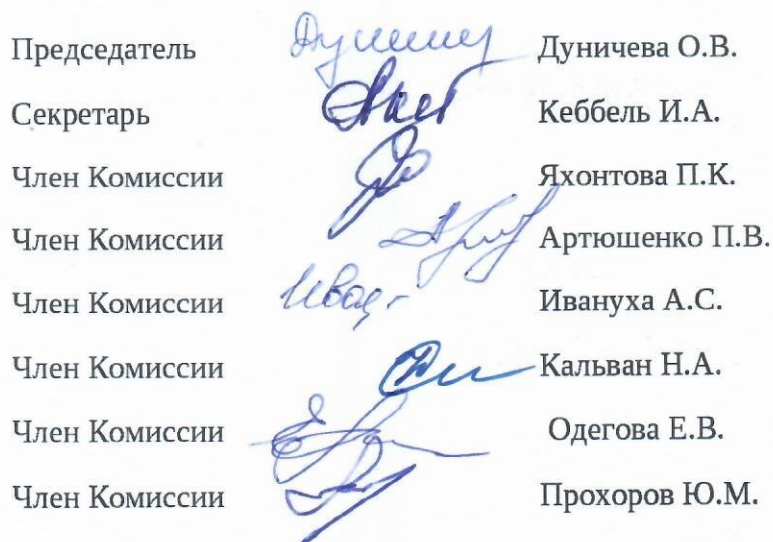 Председатель Дуничева О.В.
Секретарь Кеббель И.А.
Член Комиссии Яхонтова П.К.
Член Комиссии Артюшенко П.В.
Член Комиссии Ивануха А.С.
Член Комиссии Кальван Н.А.
Член Комиссии Одегова Е.В.
Член Комиссии Прохоров Ю.М.